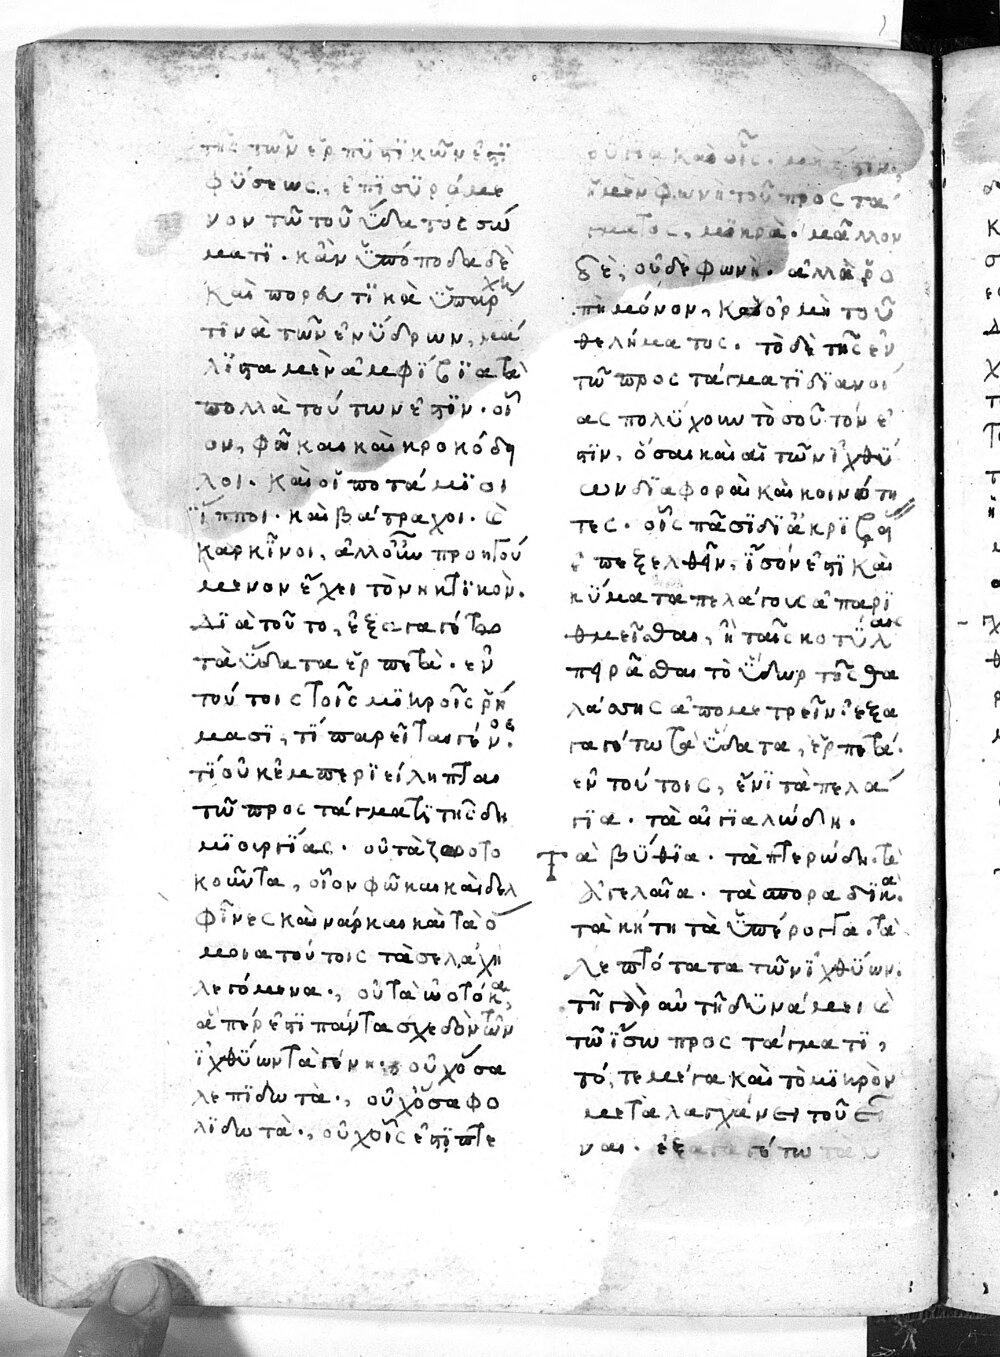 τῆς τῶν ἑρπυστικῶν ἐστι
φύσεως, ἐπισυρόμε
νον τῶ τοῦ ὕδατος σώ
ματι· κἂν ὑπόποδα δὲ
καὶ πορευτικὰ ὑπάρχη
τινὰ τῶν ἐνύδρων, μά
λιστα μὲν ἀμφίβια τὰ
πολλὰ τούτων ἐστίν· οἷ
ον, φῶκαι καὶ κροκόδη
λοι· καὶ οἱ ποτάμιοι
ἵπποι· καὶ βάτραχοι· καὶ
καρκῖνοι, ἀλλ οὖν προηγού
μενον ἔχει τὸ νηκτικὸν·
Διὰ τοῦτο, ἐξαγαγέτω
τὰ ὕδατα ἑρπετὰ· ἐν
τούτοις τοῖς μικροῖς ῥή
μασι, τί παρεῖται γένος;
τί οὐκ ἐμπεριείληπται
τῶ προστάγματι τῆς δη
μιουργίας· οὐ τὰ ζωοτο
κοῦντα, οἷον φῶκαι καὶ δελ
φῖνες καὶ νάρκαι καὶ τὰ ὅ
μοια τούτοις τὰ σελάχη
λεγόμενα·, οὐ τὰ ὠοτόκα,
ἅπερ ἐστὶ πάντα σχεδὸν τῶν
ἰχθύων τὰ γένη· οὐχ ὅσα
λεπιδωτὰ·, οὐχ ὅσα φο
λιδωτὰ·, οὐχ οἷς ἐστὶ πτε
ρύγια καὶ οἷς· μὴ ἔστιν,
ἡ μὲν φωνὴ τοῦ προστά
γματος, μικρὰ· μᾶλλον
δὲ, οὐδὲ φωνὴ· ἀλλὰ ῥο
πὴ μόνον, καὶ ὁρμὴ τοῦ
θελήματος· τὸ δὲ τῆς ἐν
τῶ προστάγματι διανοί
ας πολύχουν τοσοῦτόν ἐ
στιν, ὅσαι καὶ αἱ τῶν ἰχθύ
ων διαφοραὶ καὶ κοινότη
τες· οἷς πᾶσι δι ἀκριβείας
ἐπεξελθῆν, ἴσον ἐστὶ καὶ
κύματα πελάγους ἀπαρι
θμεῖσθαι, ἢ ταῖς κοτύλαις
πειρᾶσθαι τὸ ὕδωρ τῆς θα
λάσσης ἀπομετρεῖν· ἐξα
γαγέτω τὰ ὕδατα, ἑρπετά·
ἐν τούτοις, ἔνι τὰ πελά
για· τὰ αἰγιαλώδη·
Τὰ βύθια· τὰ πετρώδη· τὰ
ἀγελαῖα· τὰ σποραδικὰ·
τὰ κήτη τὰ ὑπέρογκα· τὰ
λεπτότατα τῶν ἰχθύων·
τῆ γὰρ αὐτῆ δυνάμει καὶ
τῶ ἴσω προστάγματι,
τό, τε μέγα καὶ τὸ μικρὸν
μεταλαγχάνει τοῦ εἶ
ναι· ἐξαγαγέτω τὰ ὕ